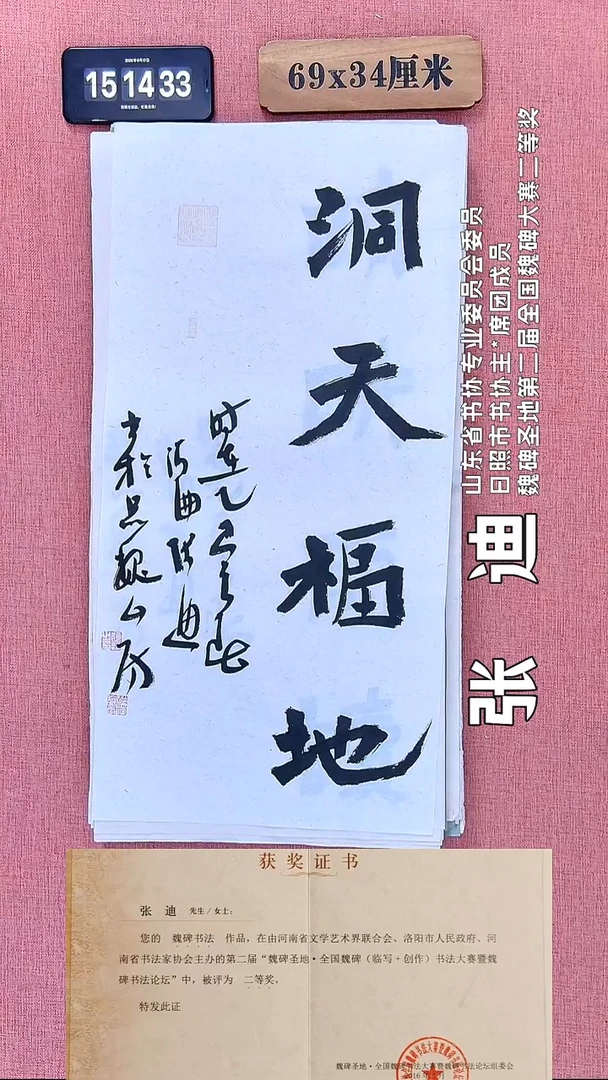 15 14 33
69x34厘米
洞天福地
山东省书协专业委员会委员
日照市书协主*席团成员
魏碑圣地第二届全国魏碑大赛二等奖
张 迪
获奖证书
张 迪 先生/女士：
您的 魏碑书法 作品，在由河南省文学艺术界联合会、洛阳市人民政府、河
南省书法家协会主办的第二届“魏碑圣地·全国魏碑（临写+创作）书法大赛暨魏
碑书法论坛”中，被评为 二等奖。
特发此证
魏碑圣地·全国魏碑书法大赛暨魏碑书法论坛组委会